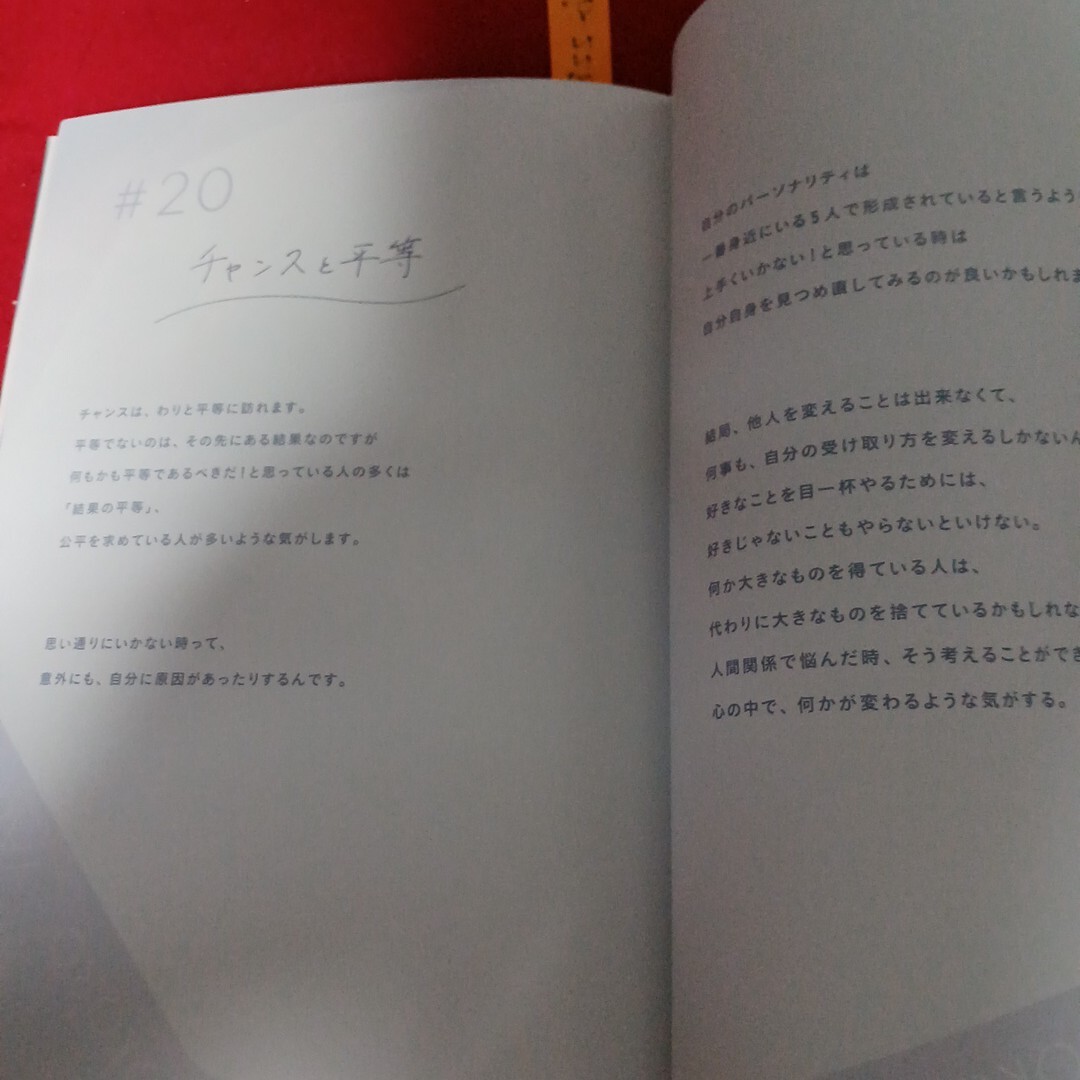 #20
チャンスと平等
チャンスは、わりと平等に訪れます。
平等でないのは、その先にある結果なのですが
何もかも平等であるべきだ！と思っている人の多くは
「結果の平等」、
公平を求めている人が多いような気がします。
思い通りにいかない時って、
意外にも、自分に原因があったりするんです。
自分のパーソナリティは
一番身近にいる5人で形成されていると言うよう
上手くいかない！と思っている時は
自分自身を見つめ直してみるのが良いかもしれま
結局、他人を変えることは出来なくて、
何事も、自分の受け取り方を変えるしかないん
好きなことを目一杯やるためには、
好きじゃないこともやらないといけない。
何か大きなものを得ている人は、
代わりに大きなものを捨てているかもしれな
人間関係で悩んだ時、そう考えることができ
心の中で、何かが変わるような気がする。